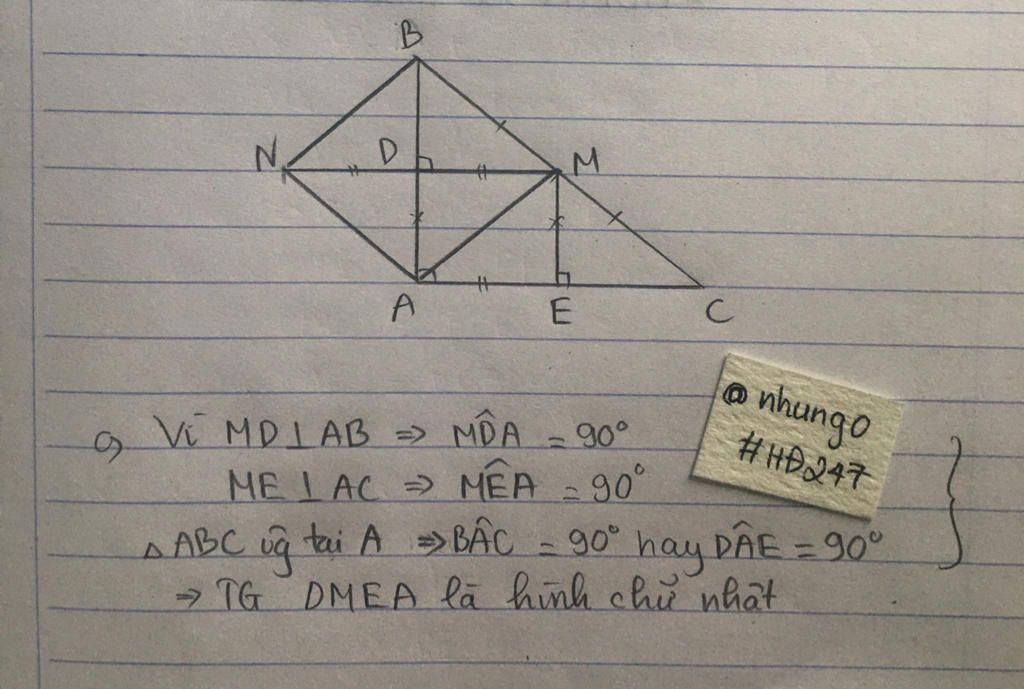 B
N D M
A E C
@ nhungo
#HĐ247
a, Vì MD⊥AB ⇒ MD̂A = 90°
ME⊥AC ⇒ MÊA = 90°
△ABC vg tại A ⇒ BÂC = 90° hay DÂE = 90°
⇒ TG DMEA là hình chữ nhật